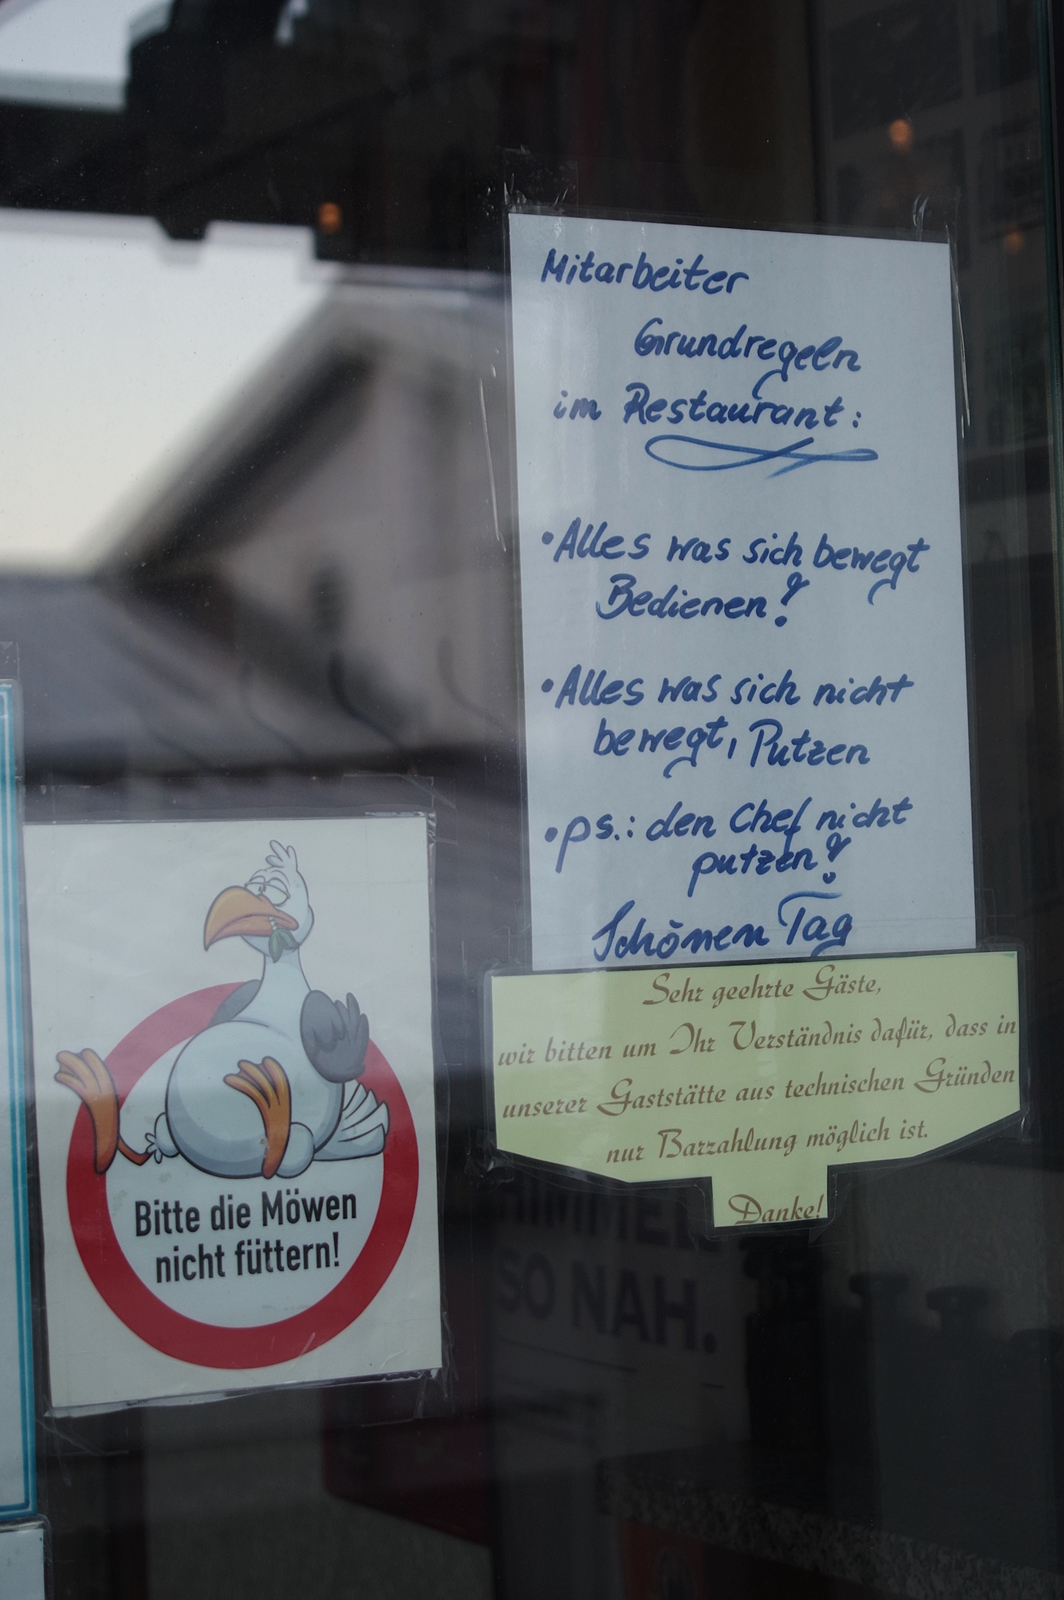 Mitarbeiter
Grundregeln
im Restaurant:
• Alles was sich bewegt
Bedienen!
• Alles was sich nicht
bewegt, Putzen
• ps.: den Chef nicht
putzen!
Schönen Tag
Sehr geehrte Gäste,
wir bitten um Ihr Verständnis dafür, dass in
unserer Gaststätte aus technischen Gründen
nur Barzahlung möglich ist.
Danke!
Bitte die Möwen
nicht füttern!
SO NAH.